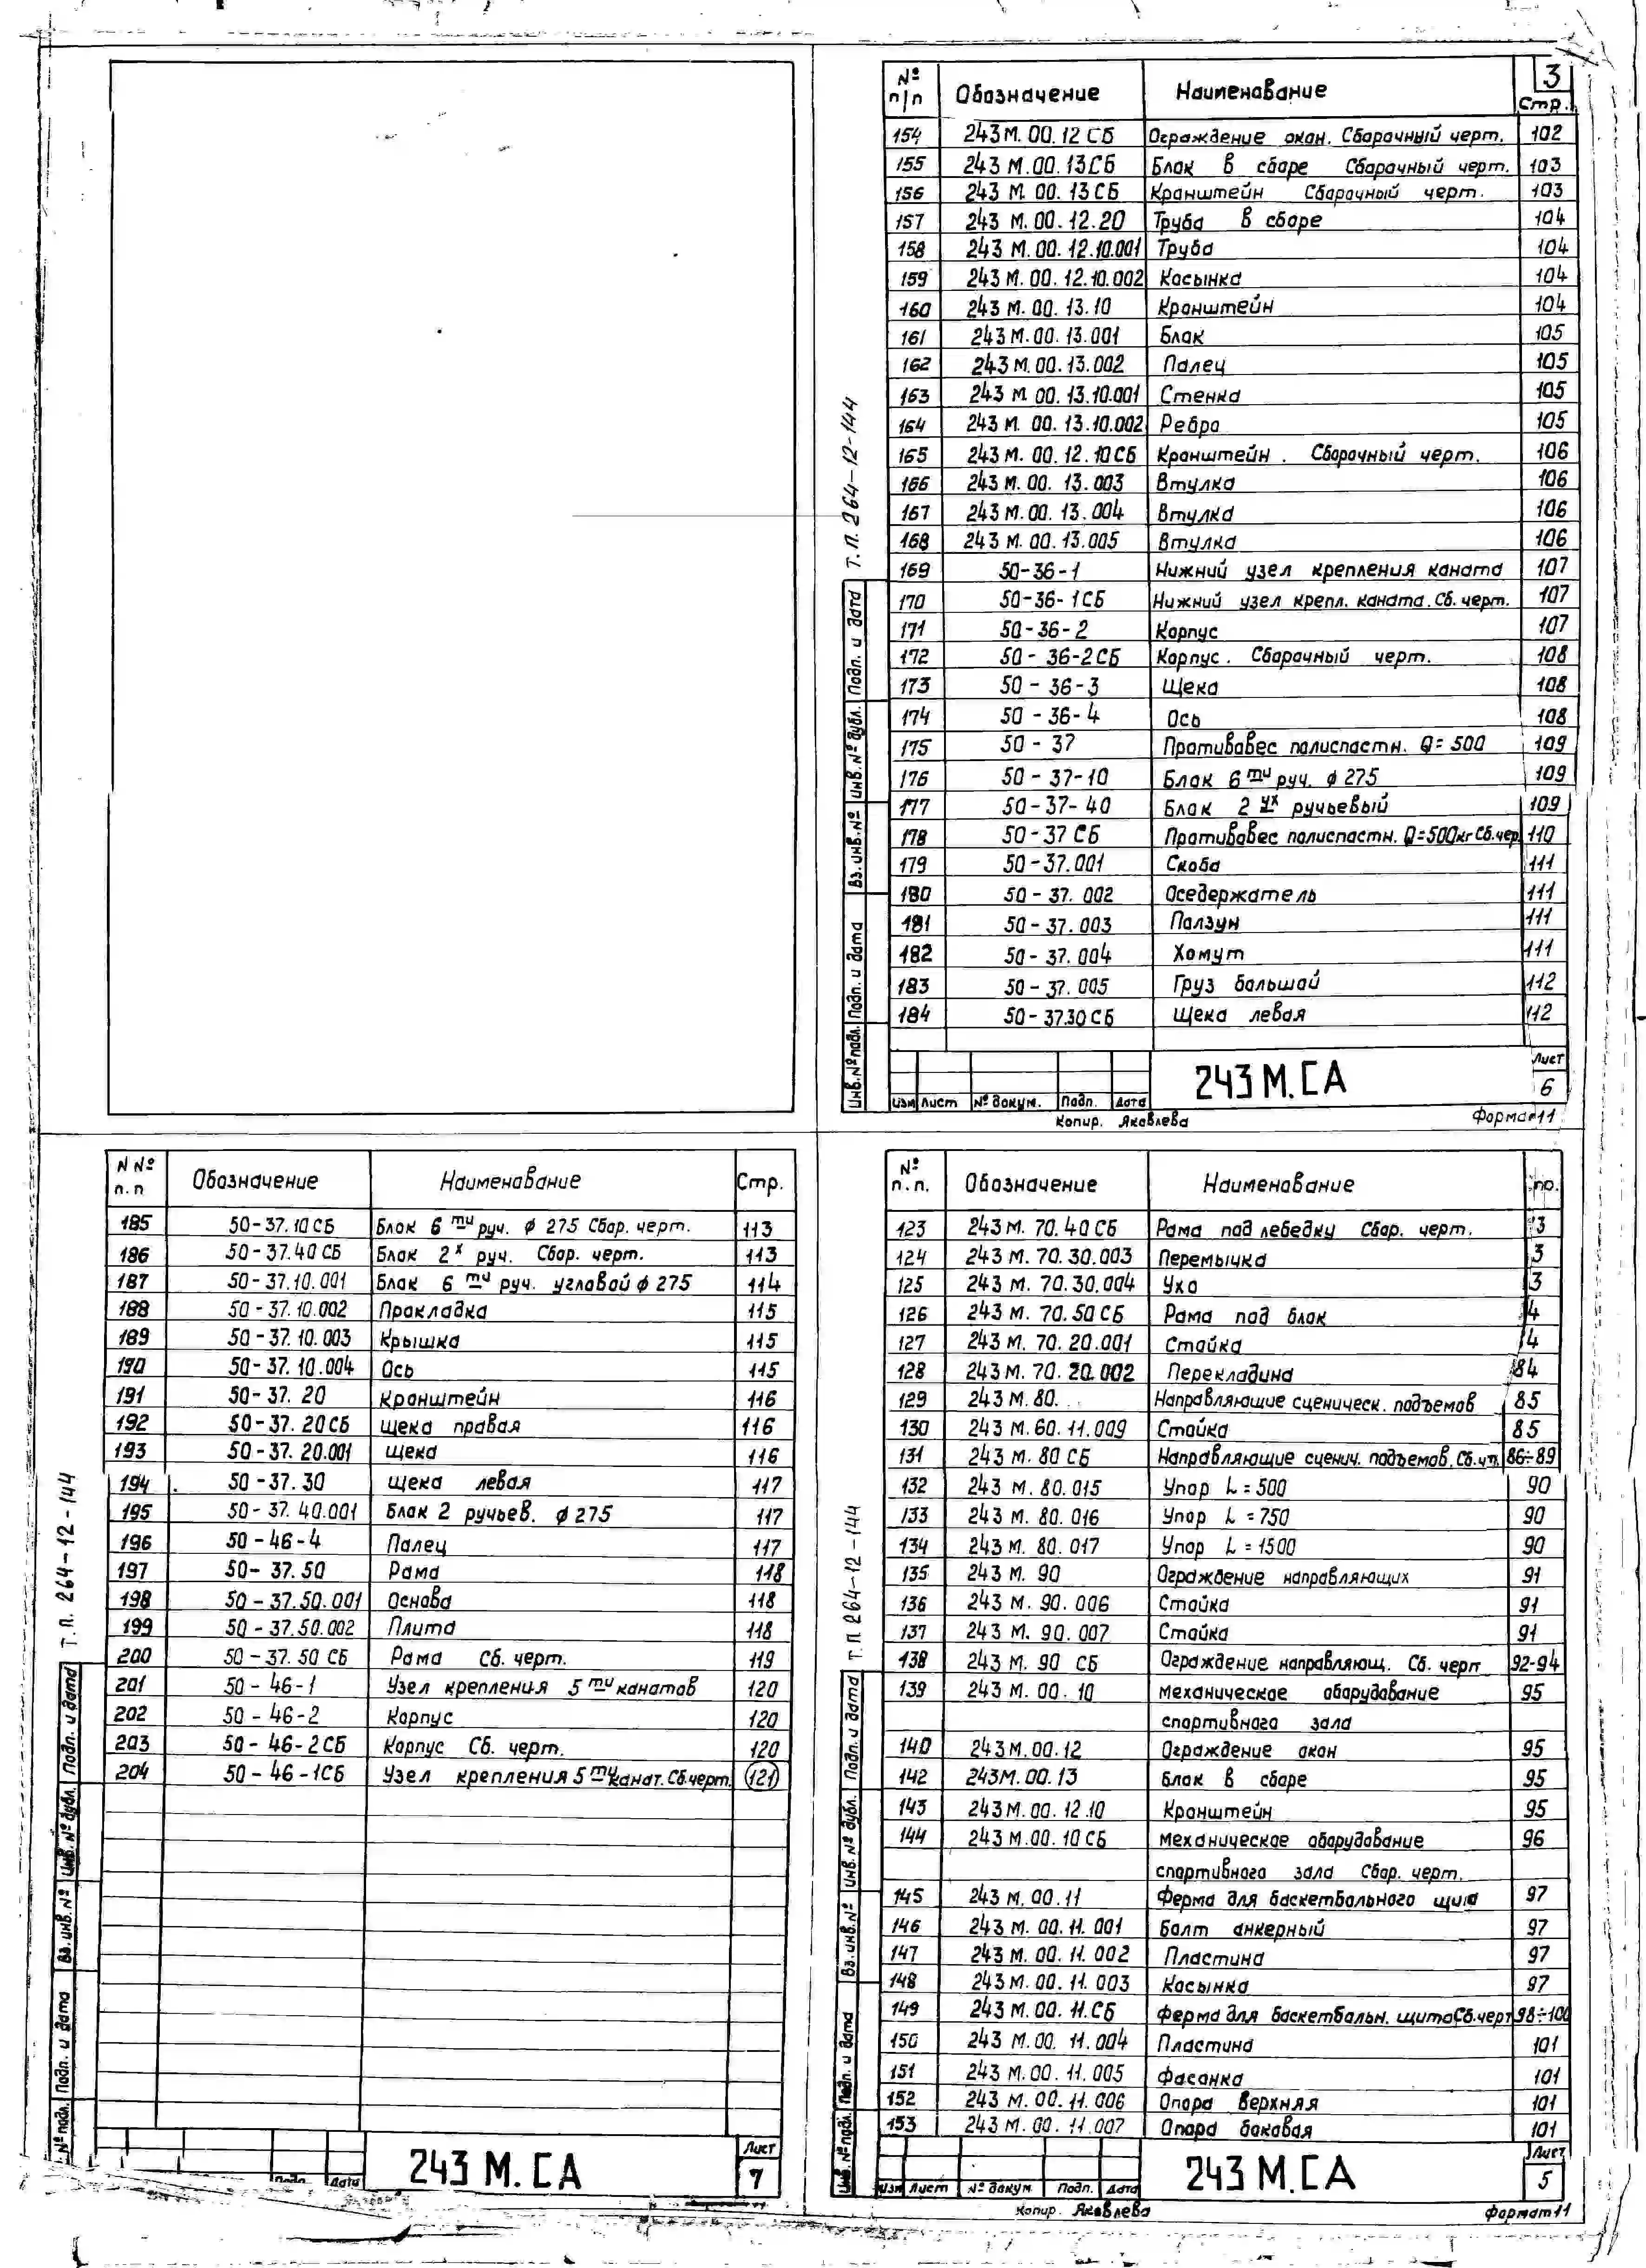 3
№ п/п Обозначение Наименование Стр.
154 243 М. 00. 12 СБ Ограждение окон. Сборочный черт. 102
155 243 М. 00. 13 СБ Блок в сборе Сборочный черт. 103
156 243 М. 00. 13 СБ Кронштейн Сборочный черт. 103
157 243 М. 00. 12. 20 Труба в сборе 104
158 243 М. 00. 12. 10.001 Труба 104
159 243 М. 00. 12. 10. 002 Косынка 104
160 243 М. 00. 13. 10 Кронштейн 104
161 243 М. 00. 13. 001 Блок 105
162 243 М. 00. 13. 002 Палец 105
163 243 М 00. 13. 10.001 Стенка 105
164 243 М. 00. 13. 10.002 Ребро 105
165 243 М. 00. 12. 10 СБ Кронштейн. Сборочный черт. 106
166 243 М. 00. 13. 003 Втулка 106
167 243 М. 00. 13. 004 Втулка 106
168 243 М. 00. 13. 005 Втулка 106
169 50-36-1 Нижний узел крепления каната 107
170 50-36-1СБ Нижний узел крепл. каната. Сб. черт. 107
171 50-36-2 Корпус 107
172 50-36-2СБ Корпус. Сборочный черт. 108
173 50-36-3 Щека 108
174 50-36-4 Ось 108
175 50-37 Противовес полиспастн. Q=500 109
176 50-37-10 Блок 6 ти руч. ϕ 275 109
177 50-37-40 Блок 2 ух ручьевый 109
178 50-37 СБ Противовес полиспастн. Q=500кг Сб.чер. 110
179 50-37.001 Скоба 111
180 50-37. 002 Оседержатель 111
181 50-37. 003 Ползун 111
182 50-37. 004 Хомут 111
183 50-37. 005 Груз большой 112
184 50-37.30 СБ Щека левая 112
Т. П. 264-12-144
Инв.№ подл. Подп. и дата Вз. инв. № Инв. № дубл. Подп. и дата
243 М.СА
Лист 6
Изм Лист № докум. Подп. Дата
Копир. Яковлева Формат 11
N № п. п Обозначение Наименование Стр.
185 50-37. 10 СБ Блок 6 ти руч. ϕ 275 Сбор. черт. 113
186 50-37. 40 СБ Блок 2 х руч. Сбор. черт. 113
187 50-37. 10. 001 Блок 6 ти руч. угловой ϕ 275 114
188 50-37. 10. 002 Прокладка 115
189 50-37. 10. 003 Крышка 115
190 50-37. 10. 004 Ось 115
191 50-37. 20 Кронштейн 116
192 50-37. 20 СБ Щека правая 116
193 50-37. 20.001 Щека 116
194 50-37. 30 Щека левая 117
195 50-37. 40.001 Блок 2 ручьев. ϕ 275 117
196 50-46-4 Палец 117
197 50-37. 50 Рама 118
198 50-37.50.001 Основа 118
199 50-37.50.002 Плита 118
200 50-37. 50 СБ Рама Сб. черт. 119
201 50-46-1 Узел крепления 5 ти канатов 120
202 50-46-2 Корпус 120
203 50-46-2 СБ Корпус Сб. черт. 120
204 50-46-1СБ Узел крепления 5 ти канат. Сб.черт. 121
Т. П. 264-12-144
№ подл. Подп. и дата Вз. инв. № Инв. № дубл. Подп. и дата
243 М.СА
Лист 7
Подп. Дата
№ п. п. Обозначение Наименование
123 243 М. 70. 40 СБ Рама под лебедку Сбор. черт. 3
124 243 М. 70. 30. 003 Перемычка 3
125 243 М. 70. 30. 004 Ухо 3
126 243 М. 70. 50 СБ Рама под блок 4
127 243 М. 70. 20. 001 Стойка 4
128 243 М. 70. 20. 002 Перекладина 84
129 243 М. 80. Направляющие сценическ. подъемов 85
130 243 М. 60. 11. 009 Стойка 85
131 243 М. 80 СБ Направляющие сценич. подъемов. Сб. чт. 86÷89
132 243 М. 80. 015 Упор L = 500 90
133 243 М. 80. 016 Упор L = 750 90
134 243 М. 80. 017 Упор L = 1500 90
135 243 М. 90 Ограждение направляющих 91
136 243 М. 90. 006 Стойка 91
137 243 М. 90. 007 Стойка 91
138 243 М. 90 СБ Ограждение направляющ. Сб. черт 92-94
139 243 М. 00. 10 Механическое оборудование 95
спортивного зала
140 243 М. 00. 12 Ограждение окон 95
142 243М. 00. 13 Блок в сборе 95
143 243 М. 00. 12. 10 Кронштейн 95
144 243 М. 00. 10 СБ Механическое оборудование 96
спортивного зала Сбор. черт.
145 243 М. 00. 11 Ферма для баскетбольного щита 97
146 243 М. 00. 11. 001 Болт анкерный 97
147 243 М. 00. 11. 002 Пластина 97
148 243 М. 00. 11. 003 Косынка 97
149 243 М. 00. 11.СБ Ферма для баскетбольн. щита Сб.черт 98÷100
150 243 М. 00. 11. 004 Пластина 101
151 243 М. 00. 11. 005 Фасонка 101
152 243 М. 00. 11. 006 Опора верхняя 101
153 243 М. 00. 11. 007 Опора боковая 101
Т. П. 264-12-144
Инв. № подл. Подп. и дата Вз. инв. № Инв. № дубл. Подп. и дата
243 М.СА
Лист 5
Изм Лист № докум Подп. Дата
Копир. Яковлева Формат 11